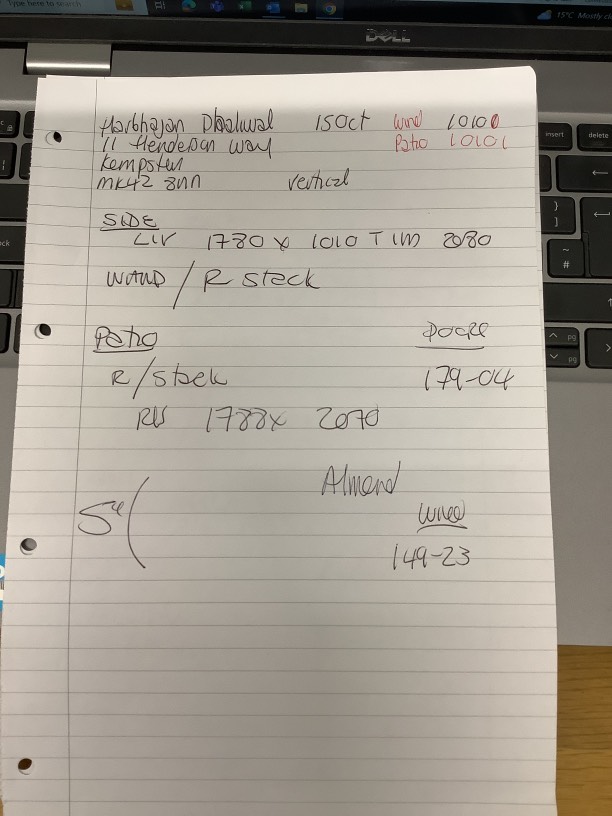 Type here to search
15°C Mostly cl
DELL
insert
delete
Harbhajan Dhaliwal 15 Oct Wind 10100
11 Henderson Way Patio 10101
Kempston
MK42 8NN vertical
SIDE
1780 x 1010 2080
WAND / R stack
Patio
R/stack 179-04
1788 x 2070
Almond
149-23